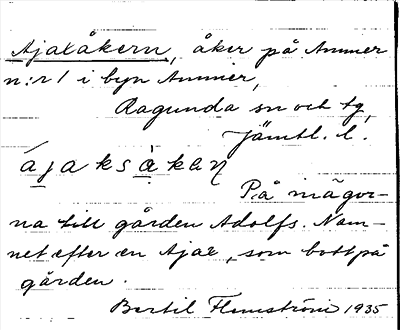 Ajaxåkern, åker på Ammer
n:r 1 i byn Ammer,
Ragunda sn och tg,
Jämtl. l.
á j a k s à̱ k a ɳ
På mägor-
na till gården Adolfs. Nam-
net efter en Ajax, som bott på
gården.
Bertil Flemström 1935